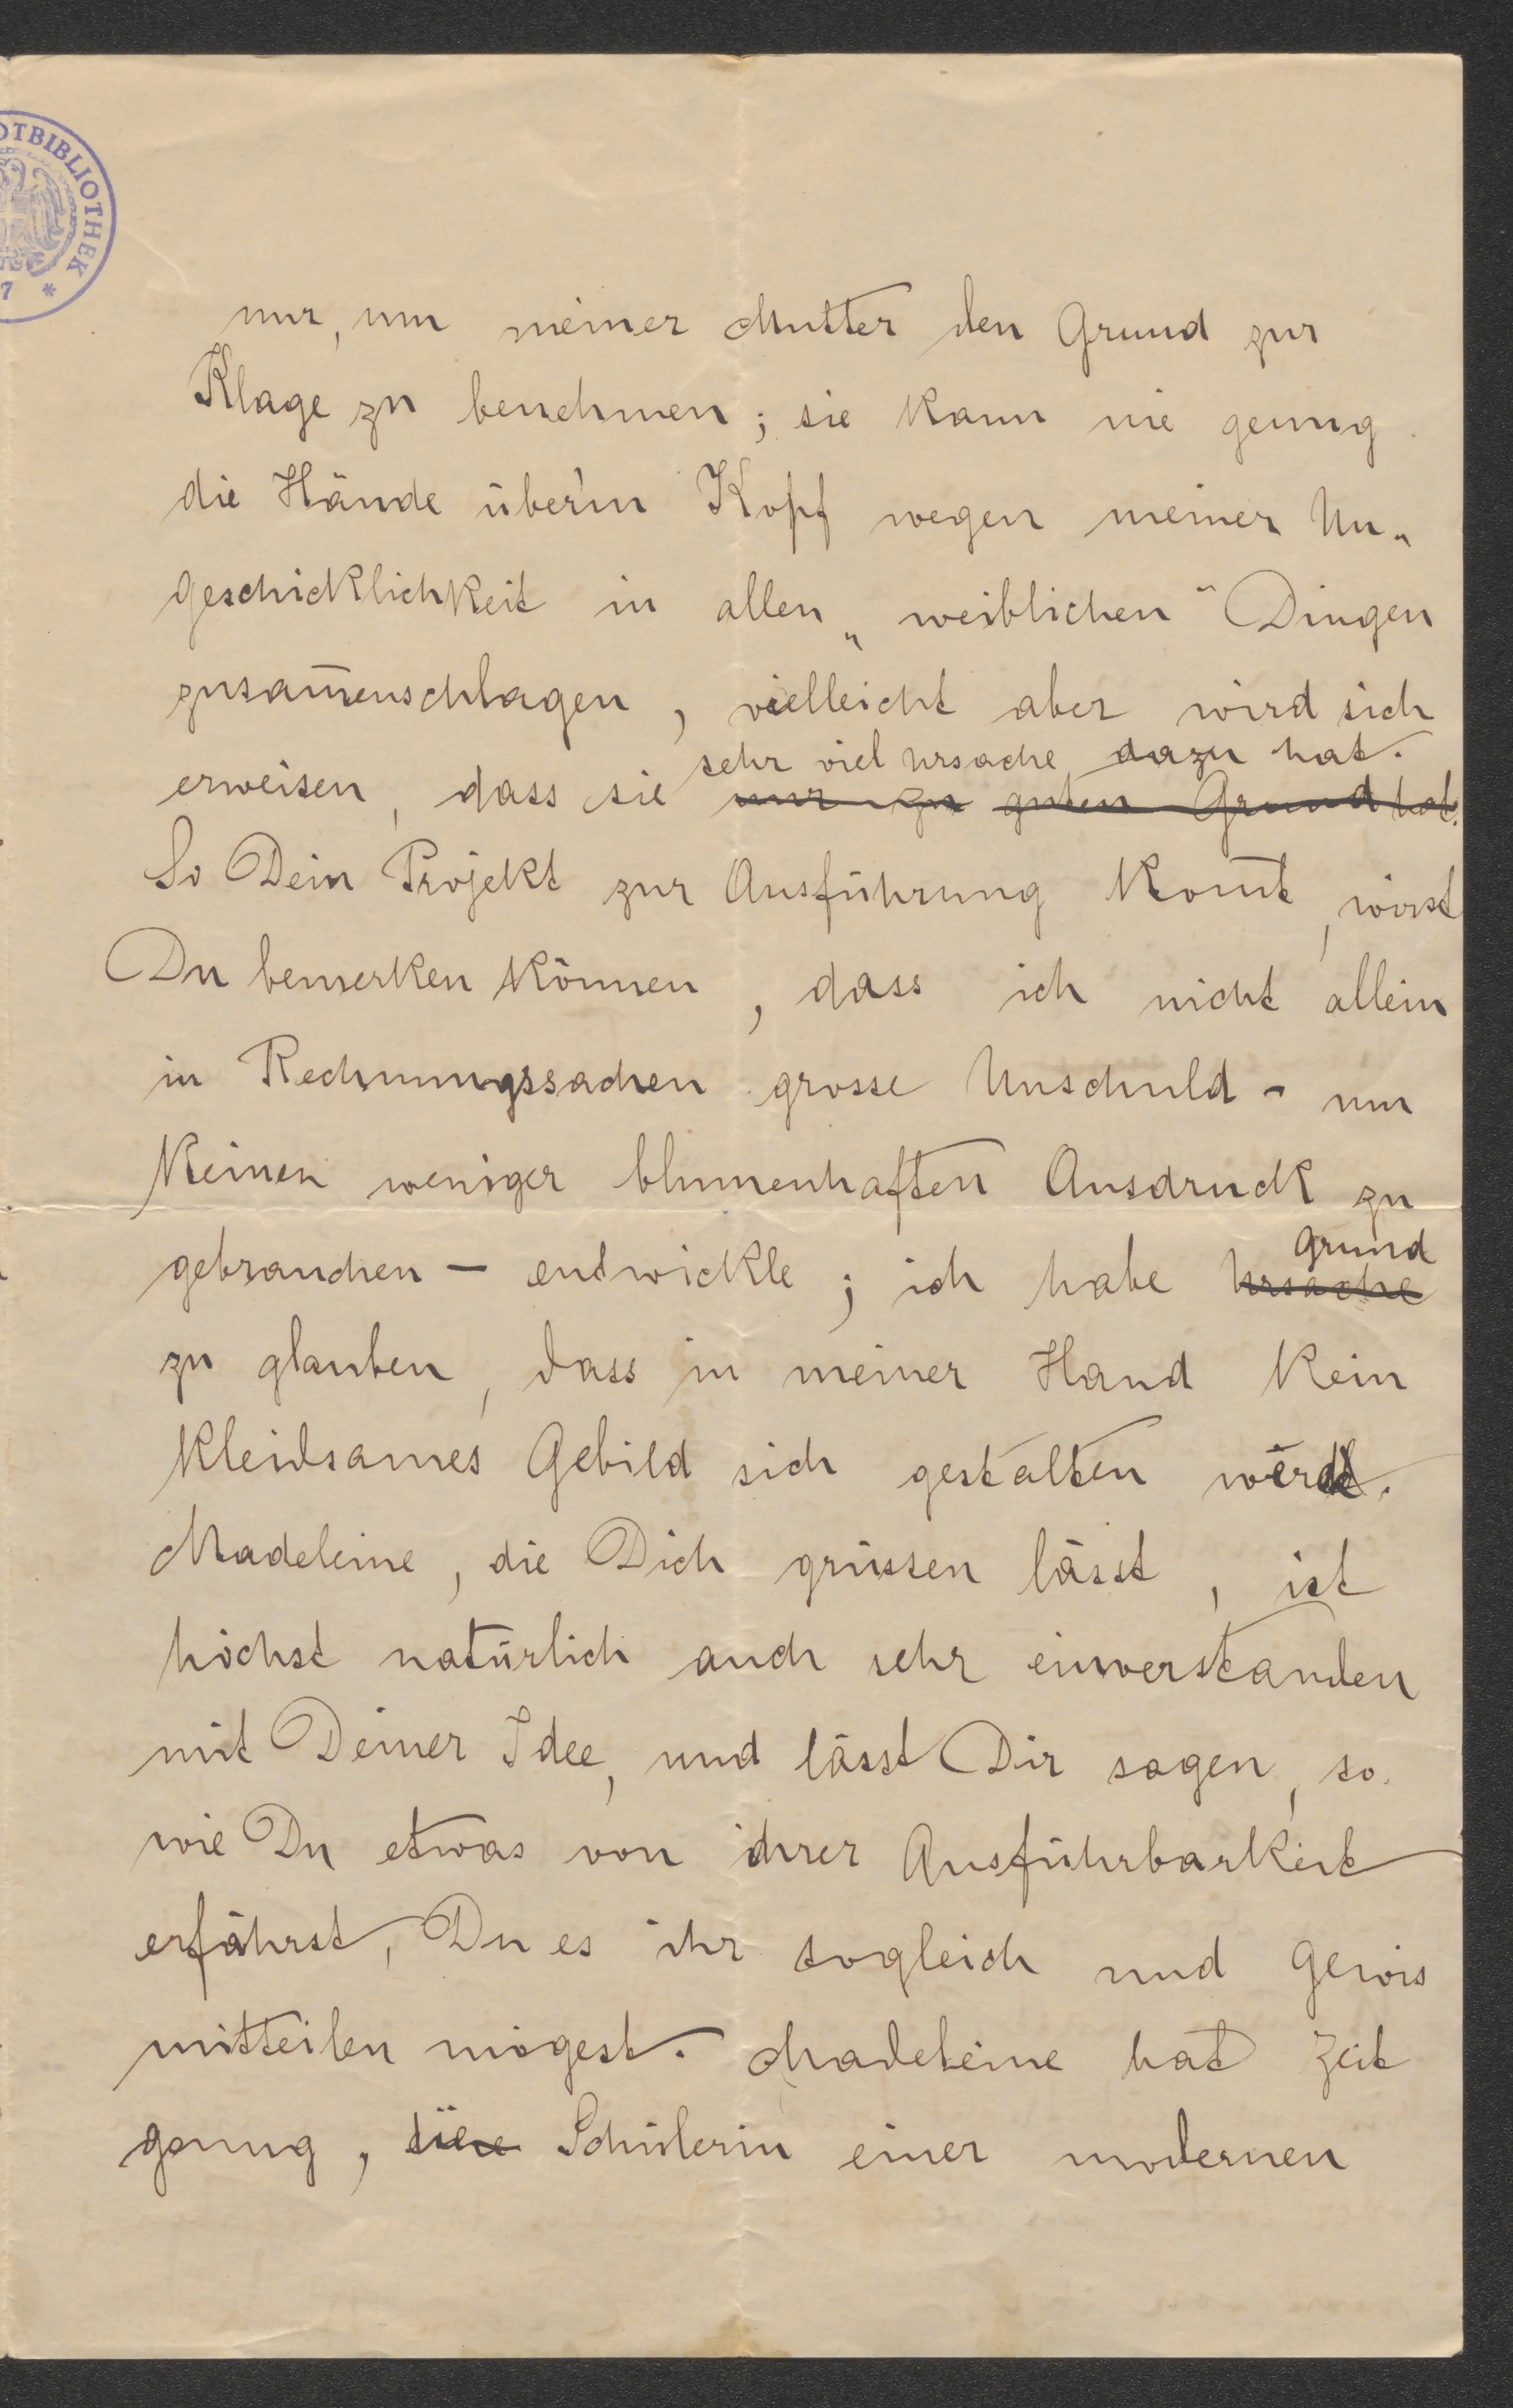 OTBIBLIOTHEK
7 *
nur, um meiner Mutter den Grund zur
Klage zu benehmen; sie kann nie genug
die Hände über'm Kopf wegen meiner Un-
geschicklichkeit in allen „weiblichen“ Dingen
zusam̄enschlagen, vielleicht aber wird sich
sehr viel Ursache dazu hat.
erweisen, dass sie nur zu guten Grund hat.
So Dein Projekt zur Ausführung kom̄t, wirst
Du bemerken können, dass ich nicht allein
in Rechnungssachen grosse Unschuld - um
keinen weniger blumenhaften Ausdruck zu
Grund
gebrauchen – entwickle; ich habe Ursache
zu glauben, dass in meiner Hand kein
kleidsames Gebild sich gestalten werde.
Madeleine, die Dich grüssen lässt, ist
höchst natürlich auch sehr einverstanden
mit Deiner Idee, und lässt Dir sagen, so
wie Du etwas von ihrer Ausführbarkeit
erfährst, Du es ihr sogleich und gewis
mitteilen mögest. Madeleine hat Zeit
genug, Schülerin einer modernen